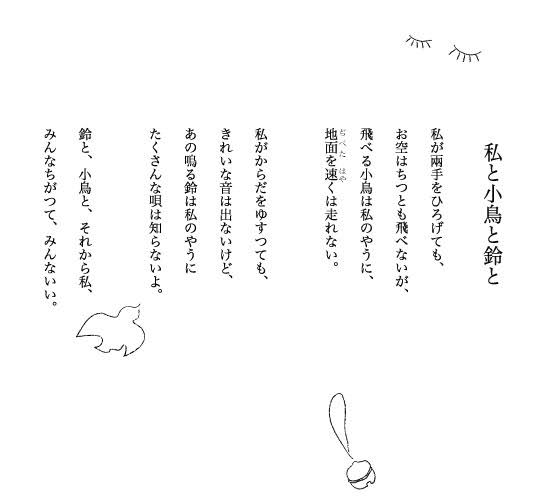 私と小鳥と鈴と
私が兩手をひろげても、
お空はちつとも飛べないが、
飛べる小鳥は私のやうに、
地面を速くは走れない。
ぢべた はや
私がからだをゆすつても、
きれいな音は出ないけど、
あの鳴る鈴は私のやうに
たくさんな唄は知らないよ。
鈴と、小鳥と、それから私、
みんなちがつて、みんないい。